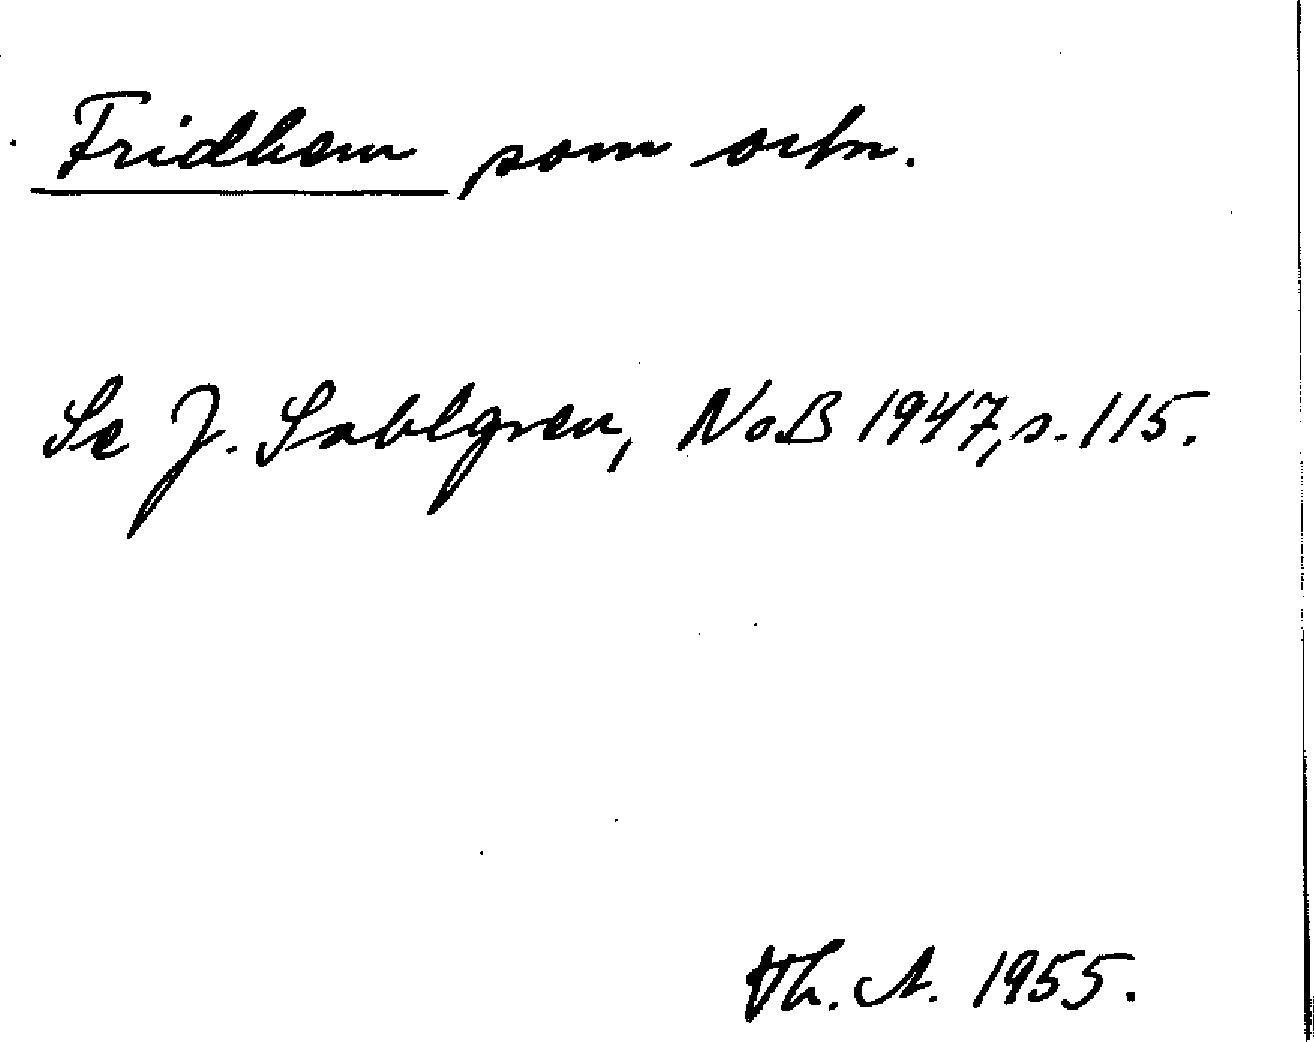 Fridhem som ortn.
Se J. Sahlgren, NoB 1947, s. 115.
Th. A. 1955.